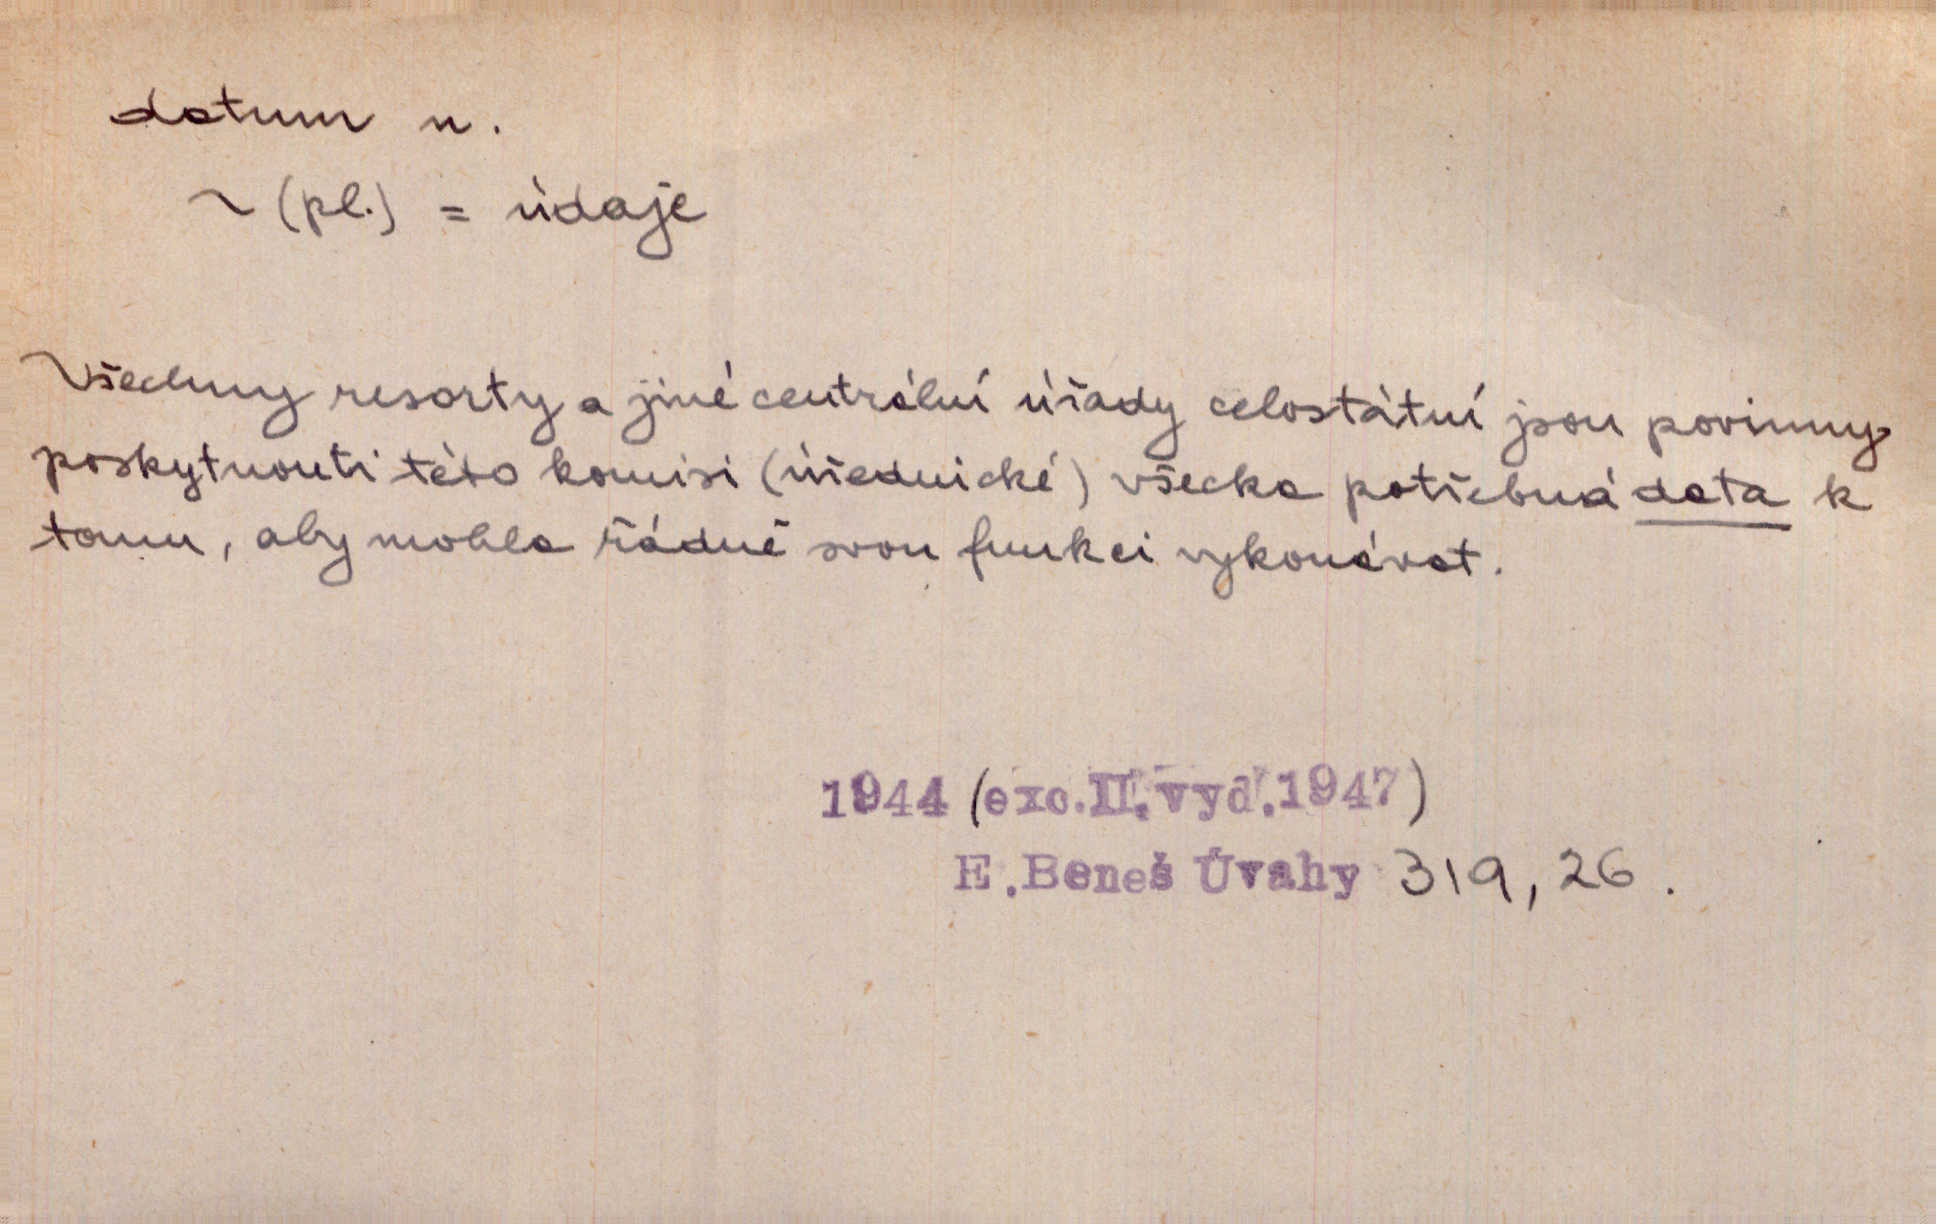 datum n.
~ (pl.) = údaje
Všechny resorty a jiné centrální úřady celostátní jsou povinny
poskytnouti této komisi (úřednické) všecka potřebná data k
tomu, aby mohla řádně svou funkci vykonávat.
1944 (exc.II.vyd.1947)
E.Beneš Úvahy 319, 26.